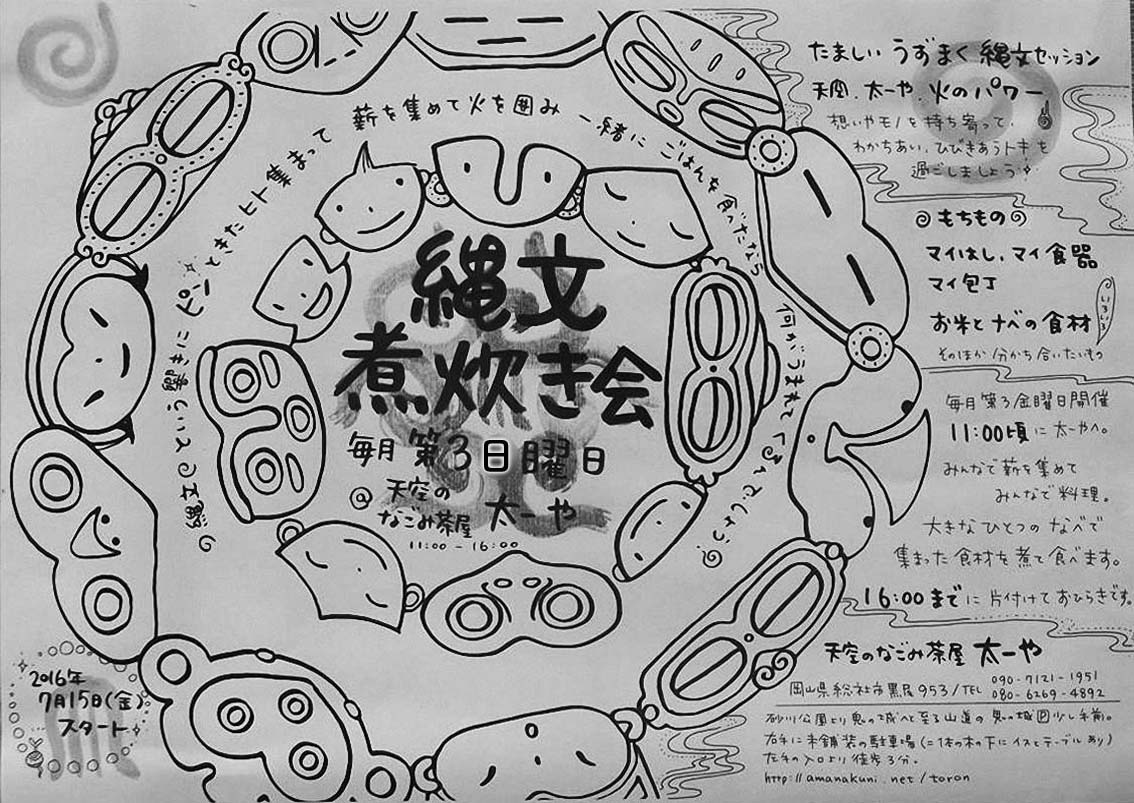 縄文
煮炊き会
毎月 第3日曜日
@ 天空の
なごみ茶屋 太一や
11:00-16:00
縄文という響きにピンときたヒト集まって 薪を集めて火を囲み 一緒に ごはんを食ったなら 何がうまれてくるんでしょう
たましい うずまく 縄文セッション
天空、太一や、火のパワー
想いやモノを持ち寄って、
わかちあい、ひびきあうトキを
過ごしましょう
もちもの
マイはし、マイ食器
マイ包丁
いろいろ
お米とナベの食材
そのほか分かち合いたいもの
毎月第3金曜日開催
11:00頃に太一やへ。
みんなで薪を集めて
みんなで料理。
大きなひとつのなべで
集まった食材を煮て食べます。
16:00までに片付けておひらきです。
天空のなごみ茶屋 太一や
岡山県総社市黒尾953/TEL 090-7121-1951
080-6269-4892
砂川公園より鬼の城へと至る山道の鬼の城少し手前。
右手に未舗装の駐車場(二体の木の下にイスとテーブルあり)
左手の入口より徒歩3分。
http://amanakuni.net/toron
2016年
7月15日(金)
スタート